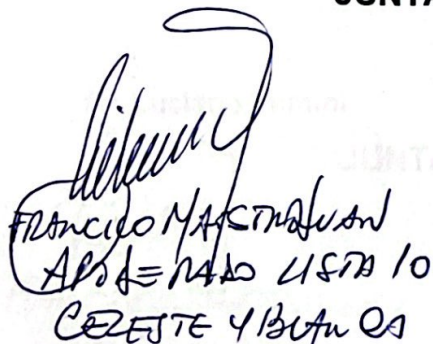 JUNTA
FRANCISCO MAESTROJUAN
APODERADO LISTA 10
CELESTE Y BLANCA